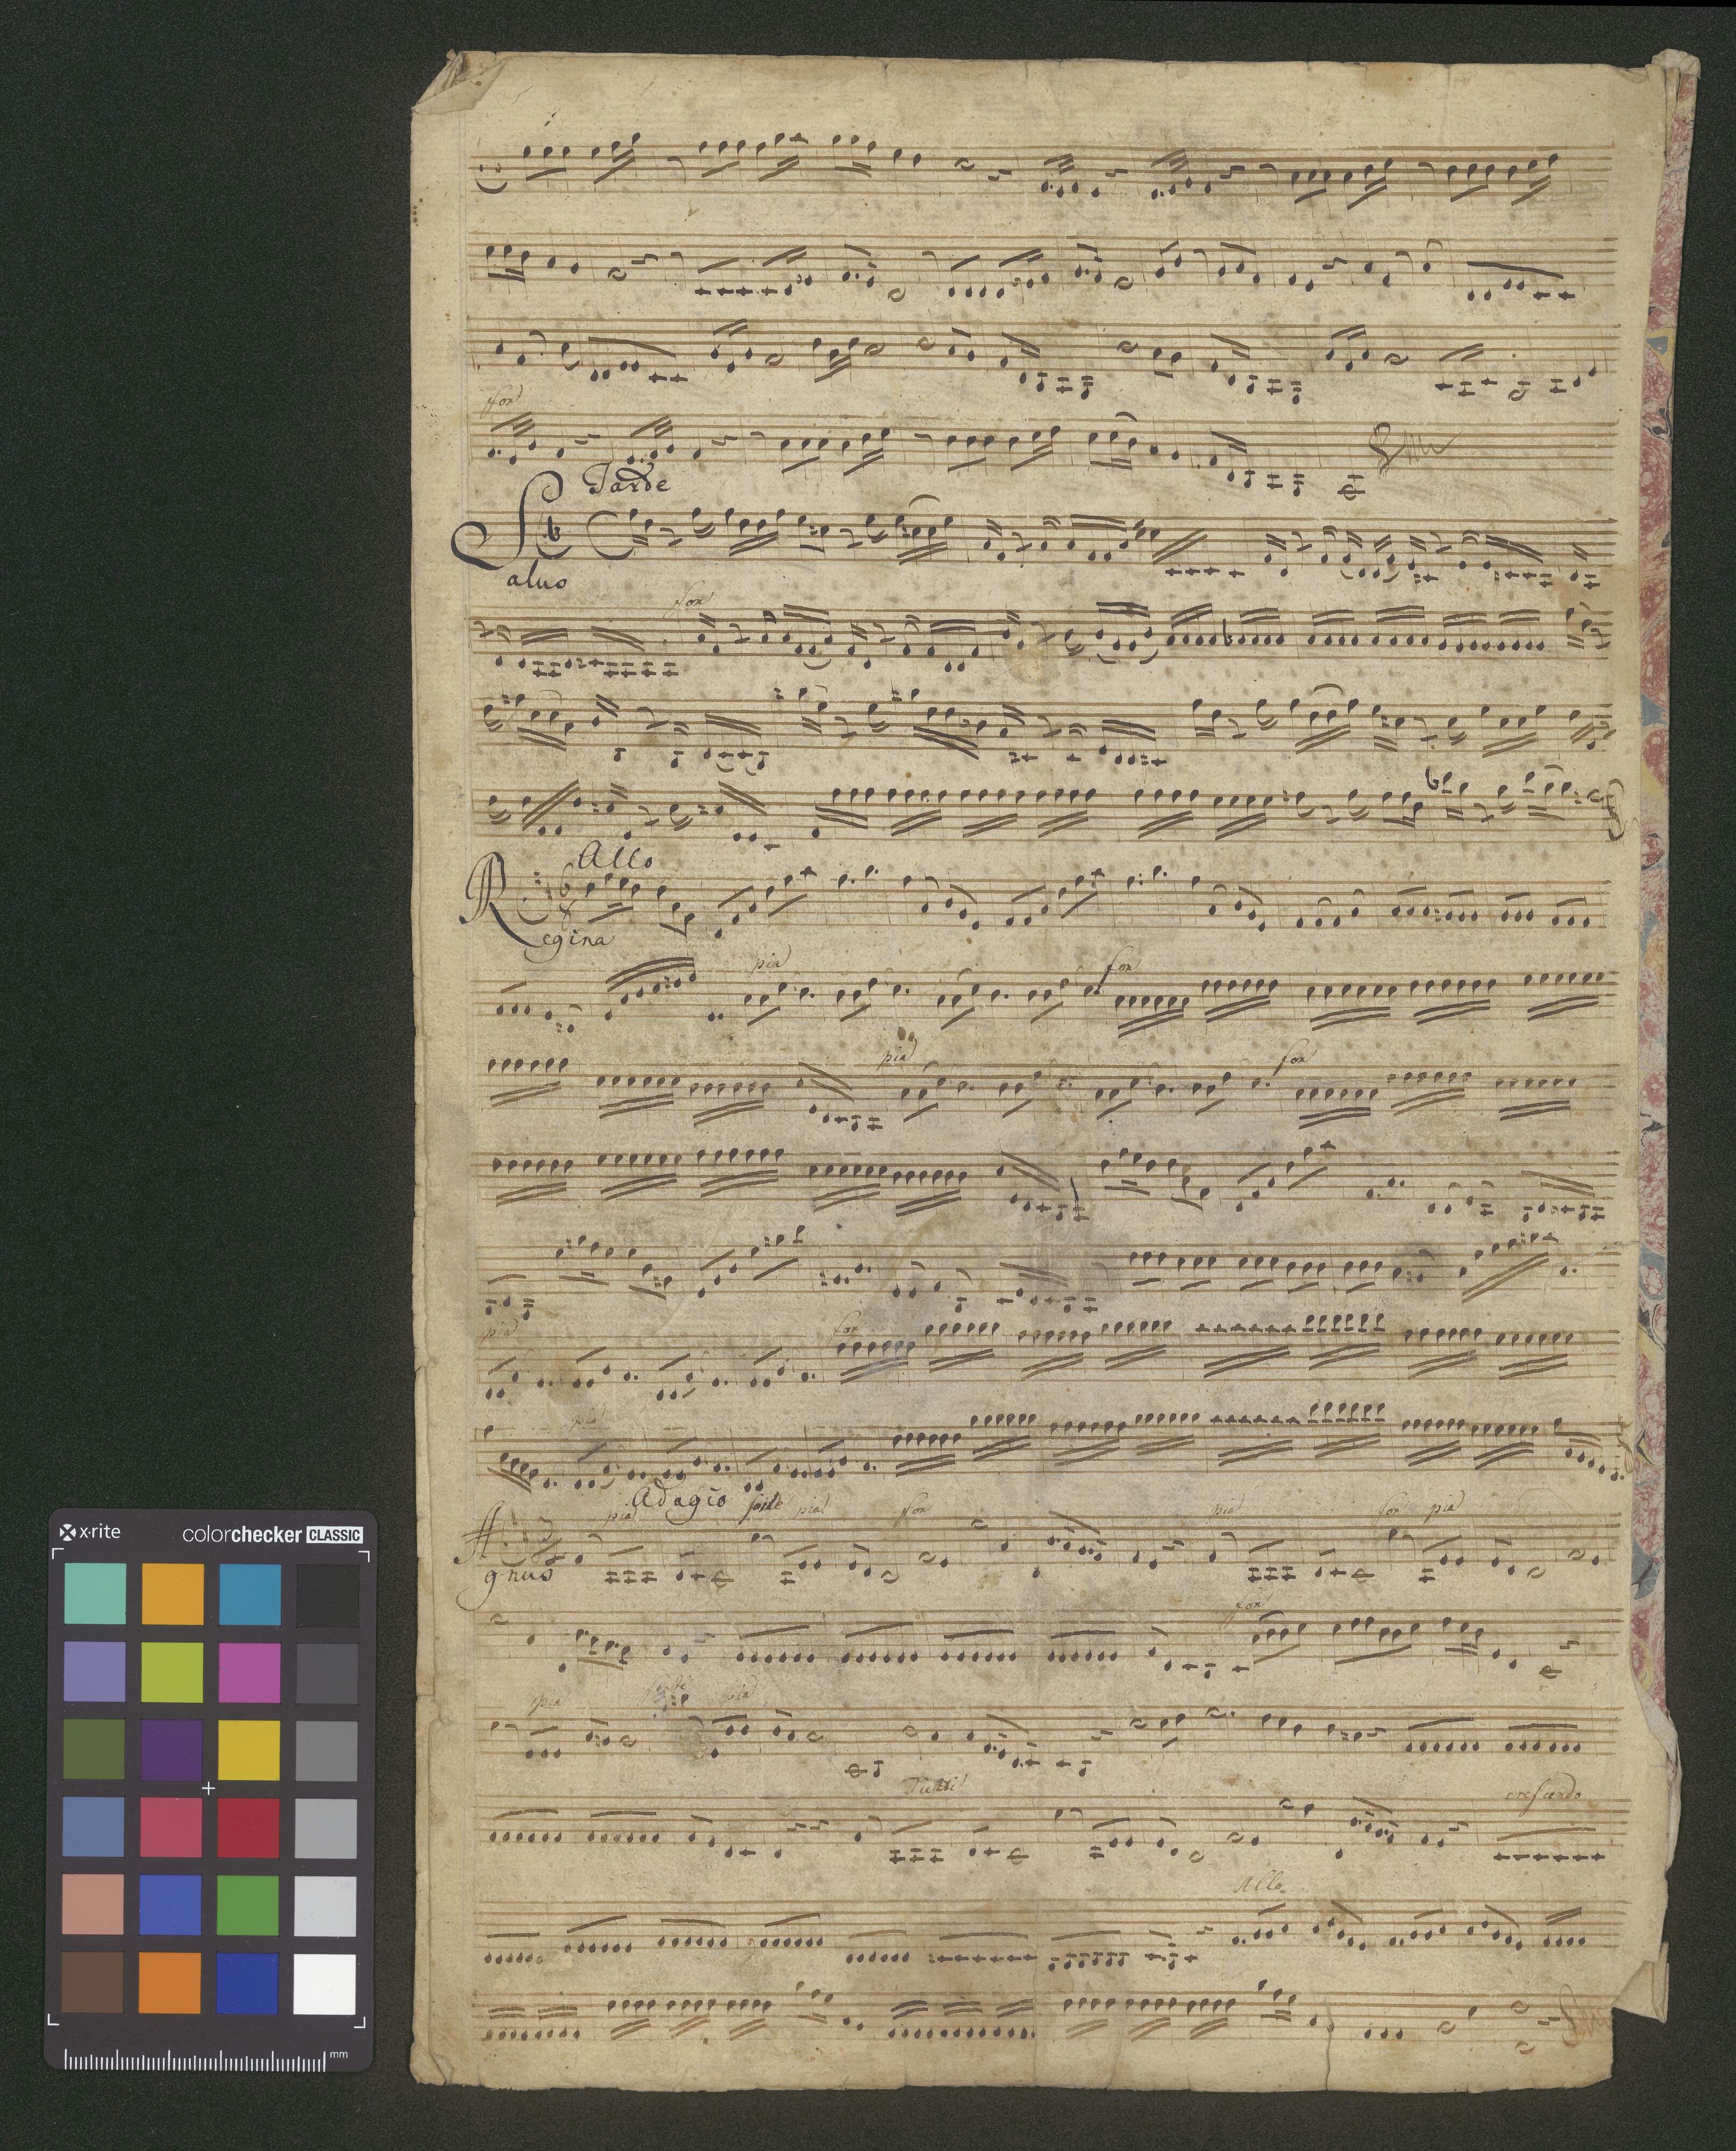 for
Tarde
Salus
for
Allo
Regina
pia for
pia for
pia for
pia
Adagio forte pia for pia for pia
Agnus
for
pia forte pia
Tutti cresciendo
Allo
x-rite colorchecker CLASSIC
mm